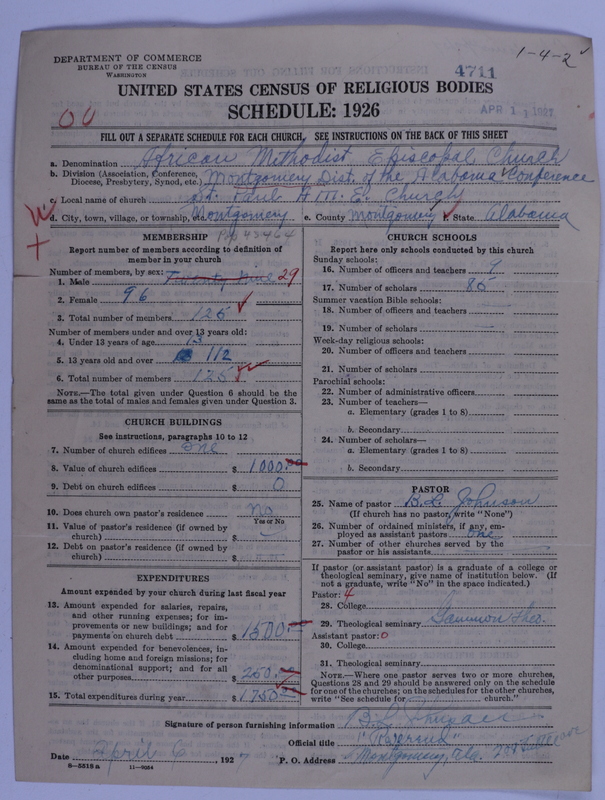 1-4-2
DEPARTMENT OF COMMERCE
BUREAU OF THE CENSUS
WASHINGTON
4711
UNITED STATES CENSUS OF RELIGIOUS BODIES
SCHEDULE: 1926
APR 11 1927
OU
FILL OUT A SEPARATE SCHEDULE FOR EACH CHURCH. SEE INSTRUCTIONS ON THE BACK OF THIS SHEET
a. Denomination African Methodist Episcopal Church
b. Division (Association, Conference, Diocese, Presbytery, Synod, etc.) Montgomery Dist. of the Alabama Conference
c. Local name of church St. Paul A.M.E. Church
d. City, town, village, or township, etc. Montgomery e. County Montgomery State. Alabama
MEMBERSHIP
Report number of members according to definition of
member in your church
Number of members, by sex:
1. Male Twenty Nine 29
2. Female 96
3. Total number of members 125
Number of members under and over 13 years old:
4. Under 13 years of age 13
5. 13 years old and over 112
6. Total number of members 125
NOTE.—The total given under Question 6 should be
same as the total of males and females given under Question 3.
CHURCH BUILDINGS
See instructions, paragraphs 10 to 12
7. Number of church edifices one
8. Value of church edifices $ 1000.00
9. Debt on church edifices $ 0
10. Does church own pastor's residence No
Yes or No
11. Value of pastor's residence (if owned by
church) $
12. Debt on pastor's residence (if owned by
church) $
EXPENDITURES
Amount expended by your church during last fiscal year
13. Amount expended for salaries, repairs,
and other running expenses; for im-
provements or new buildings; and for
payments on church debt $ 1500.00
14. Amount expended for benevolences, in-
cluding home and foreign missions; for
denominational support; and for all
other purposes $ 250.00
15. Total expenditures during year $ 1750
CHURCH SCHOOLS
Report here only schools conducted by this church
Sunday schools:
16. Number of officers and teachers 9
17. Number of scholars 85
Summer vacation Bible schools:
18. Number of officers and teachers
19. Number of scholars —
Week-day religious schools:
20. Number of officers and teachers
21. Number of scholars
Parochial schools:
22. Number of administrative officers
23. Number of teachers—
a. Elementary (grades 1 to 8)
b. Secondary
24. Number of scholars—
a. Elementary (grades 1 to 8)
b. Secondary
PASTOR
25. Name of pastor B.L. Johnson
(If church has no pastor, write "None")
26. Number of ordained ministers, if any, em-
ployed as assistant pastors one
27. Number of other churches served by the
pastor or his assistants
If pastor (or assistant pastor) is a graduate of a college or
theological seminary, give name of institution below. (If
not a graduate, write "No" in the space indicated.)
Pastor: 4
28. College
29. Theological seminary Gammon Theo.
Assistant pastor: 0
30. College
31. Theological seminary
NOTE.—Where one pastor serves two or more churches,
Questions 28 and 29 should be answered only on the schedule
for one of the churches; on the schedules for the other churches,
write "See schedule for church."
Signature of person furnishing information
Official title "Reverend"
Date April 6, 1927 P. O. Address Montgomery, Ala.
8—5518 a 11—9034